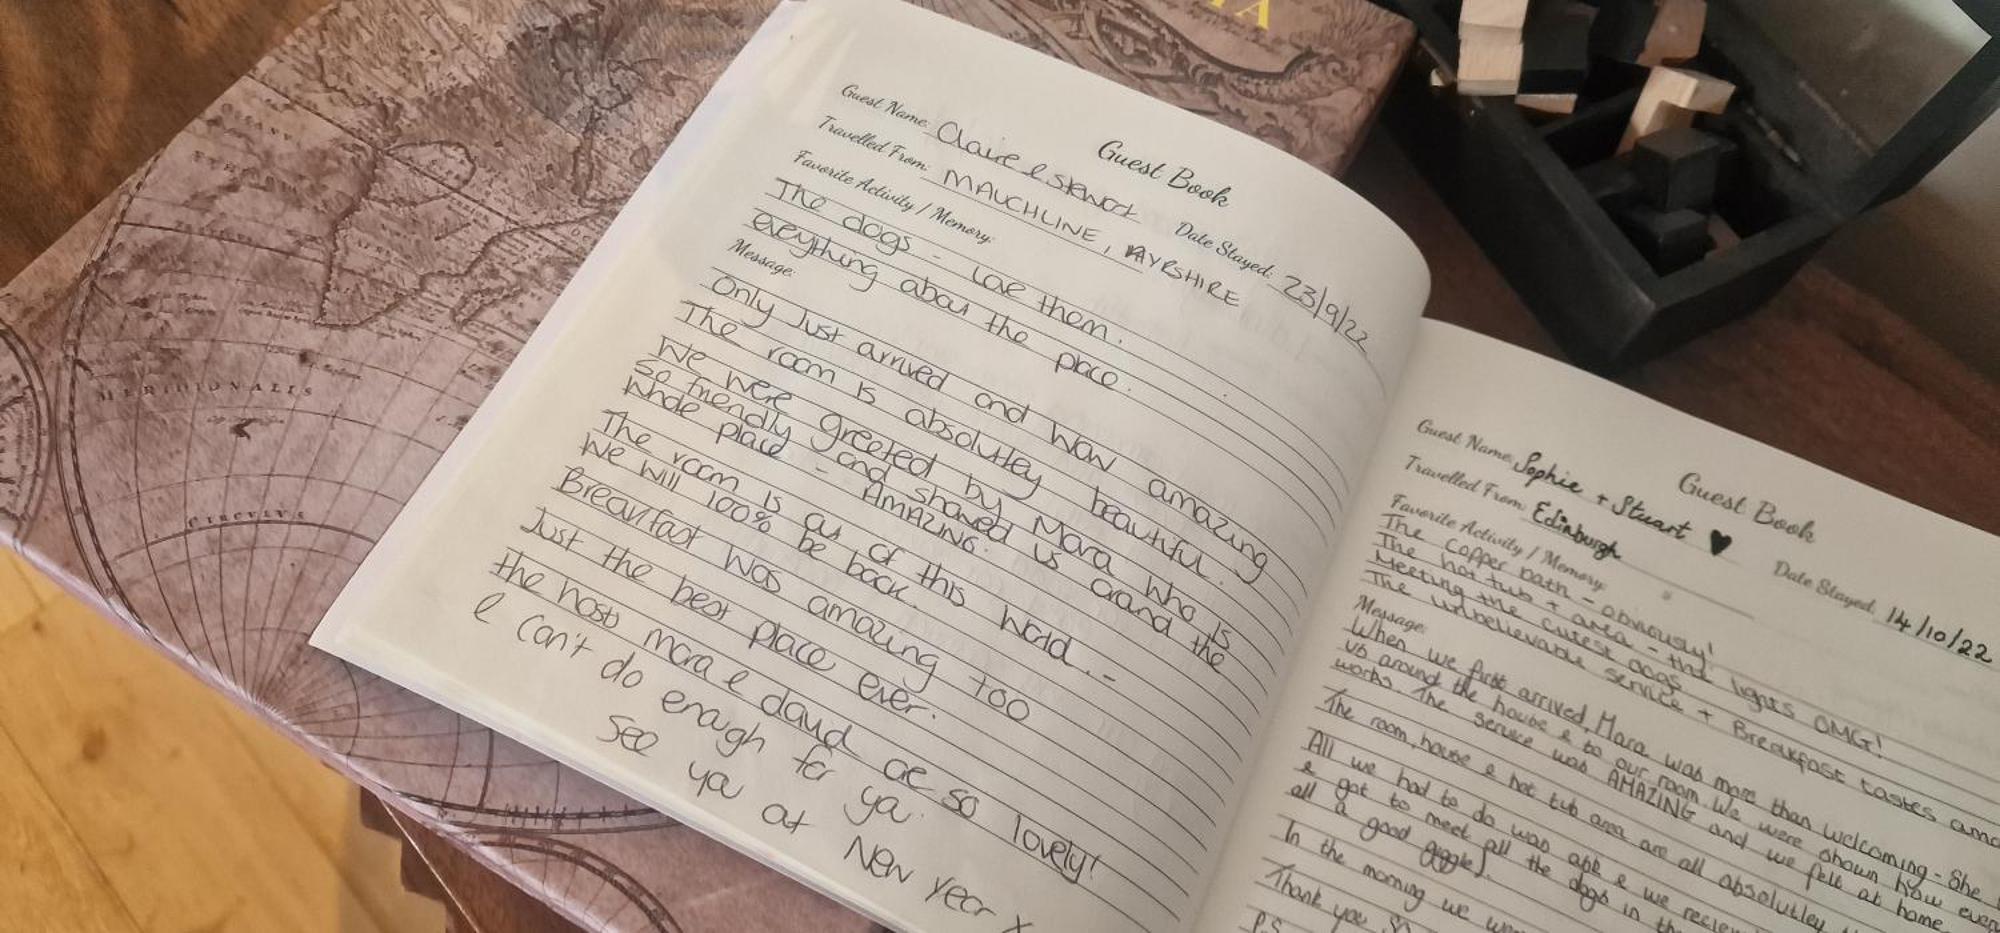 Guest Book
Guest Name: Claire & Stewart Date Stayed: 23/9/22
Travelled From: MAUCHLINE, AYRSHIRE
Favorite Activity / Memory:
The dogs - Love them.
everything about the place.
Message:
Only Just arrived and Wow amazing
The room is absolutley beautiful.
We were greeted by Mara who is
so friendly and showed us around the
whole place - AMAZING.
The room is out of this world. -
We will 100% be back.
Breakfast was amazing too
Just the best place ever.
the hosts mara & david are so lovely!
& can't do enough for you.
See you at New year x
Guest Book
Guest Name: Sophie + Stuart ♥ Date Stayed: 14/10/22
Travelled From: Edinburgh
Favorite Activity / Memory:
The copper bath - obviously!
The hot tub + area - the lights OMG!
Meeting the cutest dogs
The unbelievable service + Breakfast tastes
Message:
When we first arrived, Mara was more than welcoming - She
us around the house & to our room. We were shown how
works. The service was AMAZING and we felt at home.
The room, house & hot tub area are all absolutley
All we had to do was ask & we
& got to meet all the dogs in
all a good giggle).
In the morning we
Thank you
P.S
MERIDIONALIS
CIRCULUS